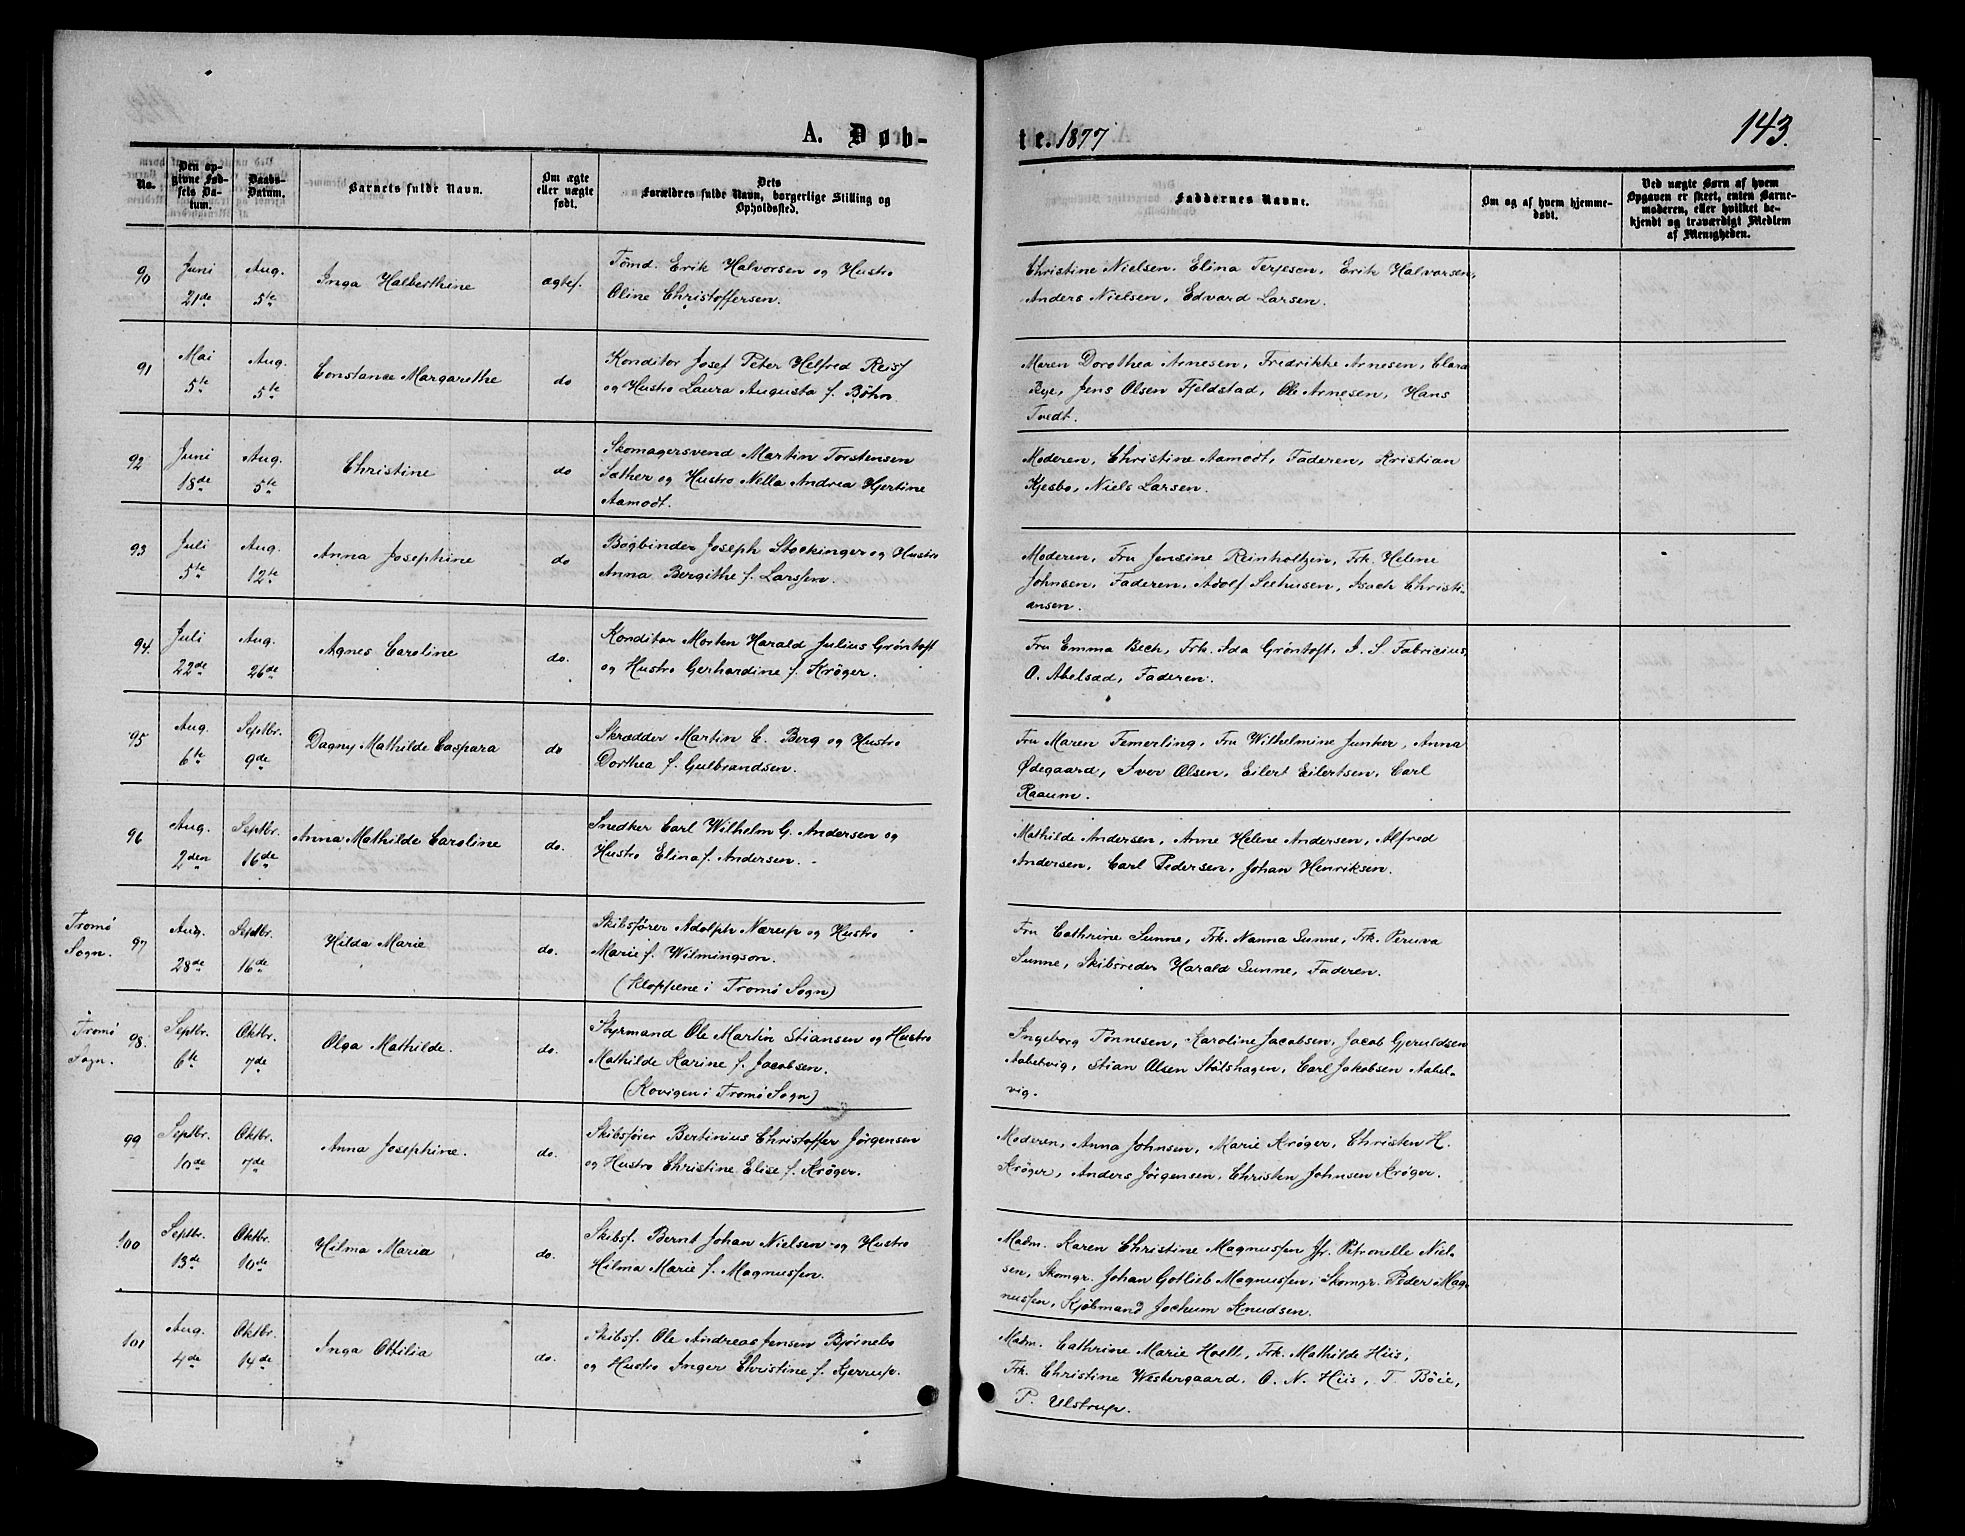 143.
A. Døb-
te. 1877
No.
Den op-
givne Fød-
sels Da-
tum.
Daabs-
Datum.
Barnets fulde Navn.
Om ægte
eller uægte
født.
Dets
Forældres fulde Navn, borgerlige Stilling og
Opholdssted.
Faddernes Navne.
Om og af hvem hjemme-
døbt.
Ved uægte Børn af hvem
Opgaven er skeet, enten Barne-
moderen, eller hvilket be-
kjendt og troværdigt Medlem
af Menigheden.
90
Juni
21de
Aug.
5te
Inga Halberthine
ægtef.
Tømd. Erik Halvorsen og Hustro
Oline Christoffersen.
Christine Nielsen. Elina Terjesen. Erik Halvorsen,
Anders Nielsen, Edvard Larsen.
91
Mai
5te
Aug.
5te
Constance Margarethe
do
Konditor Josef Peter Helfred Reisf
og Hustro Laura Augusta f. Böhn.
Maren Dorothea Arnesen, Fredrikke Arnesen, Clara
Rye, Jens Olsen Fjeldstad, Ole Arnesen, Hans
Tvedt.
92
Juni
18de
Aug.
5te
Christine
do
Skomagersvend Martin Torstensen
Sæther og Hustro Nella Andrea Hjertine
Aamodt.
Moderen, Christine Aamodt, Faderen, Kristian
Kjesbo, Niels Larsen.
93
Juli
5te
Aug.
12te
Anna Josephine
do
Bogbinder Joseph Stockinger og Hustro
Anna Bergithe f. Larssen.
Moderen, Fru Jensine Reinholtzen, Frk. Helene
Johnsen, Faderen, Adolf Seehusen, Isach Christi-
ansen.
94.
Juli
22de
Aug.
26de
Agnes Caroline
do.
Konditor Morten Harald Julius Grøntoft
og Hustro Gerhardine f. Krøger.
Fru Emma Bech, Frk. Ida Grøntoft, I. S. Fabricius,
O. Abelsæd, Faderen.
95
Aug.
6te
Septbr.
9de
Dagny Mathilde Caspara
do
Skrædder Martin C. Berg og Hustro
Dorthea f. Gulbrandsen.
Fru Maren Temerling, Fru Wilhelmine Junker, Anna
Ødegaard, Iver Olsen, Eilert Eilertsen, Carl
Raaum.
96
Aug.
2den
Septbr.
16de
Anna Mathilde Caroline
do.
Snedker Carl Wilhelm G. Andersen og
Hustro Elina f. Andersen.
Mathilde Andersen, Anne Helene Andersen, Alfred
Andersen, Carl Pedersen, Johan Henriksen.
Tromø
Sogn.
97
Aug.
28de
Septbr.
16de
Hilda Marie
do.
Skibsfører Adolph Nærup og Hustro
Marie f. Wilmingson.
(Kloppene i Tromø Sogn)
Fru Cathrine Sunne, Frk. Nanna Sunne, Frk. Peruva
Sunne, Skibsreder Harald Sunne, Faderen.
Tromø
Sogn.
98.
Septbr.
6te
Oktbr.
7de
Olga Mathilde.
do.
Styrmand Ole Martin Stiansen og Hustro
Mathilde Karine f. Jacobsen.
(Kovigen i Tromø Sogn)
Ingeborg Tønnesen, Karoline Jacobsen, Jacob Gjeruldsen
Aabelvig, Stian Olsen Stølshagen, Carl Jakobsen Aabel-
vig.
99
Septbr.
10de
Oktbr.
7de
Anna Josephine.
do.
Skibsfører Bertinius Christoffer Jørgensen
og Hustro Christine Elise f. Krøger.
Moderen, Anna Johnsen, Marie Krøger, Christen H.
Krøger, Anders Jørgensen, Christen Johnsen Krøger.
100
Septbr.
13de
Oktbr.
10de
Hilma Maria
do.
Skibsf. Bernt Johan Nielsen og Hustro
Hilma Marie f. Magnussen.
Madm. Karen Christine Magnussen Jfr. Petronelle Niel-
sen, Skomgr. Johan Gotlieb Magnussen, Skomgr. Peder Mag-
nussen, Kjøbmand Jochum Knudsen.
101
Aug.
4de
Oktbr.
14de
Inga Ottilia
do.
Skibsf. Ole Andreas Jensen Bjørnebo
og Hustro Inger Christine f. Kjerrup.
Madm. Cathrine Marie Hoell, Frk. Mathilde Hiis,
Frk. Christine Westergaard. O. N. Hiis, T. Bøie,
P. Ulstrup.